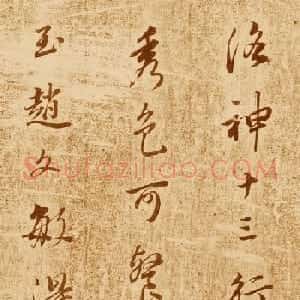 洛神十三行
秀色可餐
玉赵文敏
Shufaziliao.com